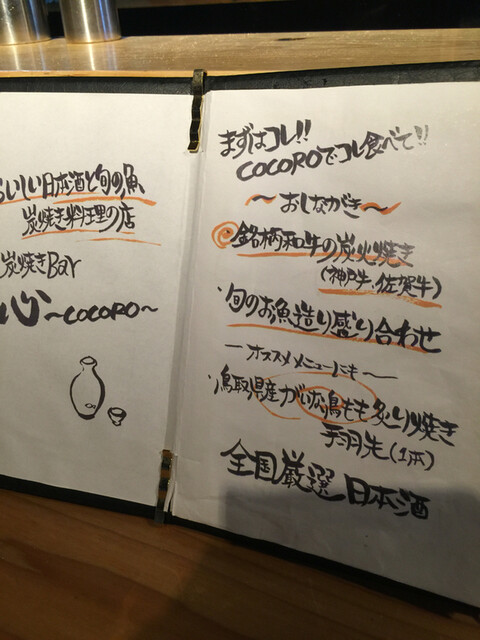 おいしい日本酒と旬の魚
炭焼き料理の店
炭焼きBar
心〜COCORO〜
まずはコレ!!
COCOROでコレ食べて!!
〜おしながき〜
銘柄和牛の炭火焼き
(神戸牛、佐賀牛)
旬のお魚造り盛り合わせ
―オススメメニューにも―
鳥取県産がいな鳥もも炙り焼き
手羽先(1本)
全国厳選日本酒